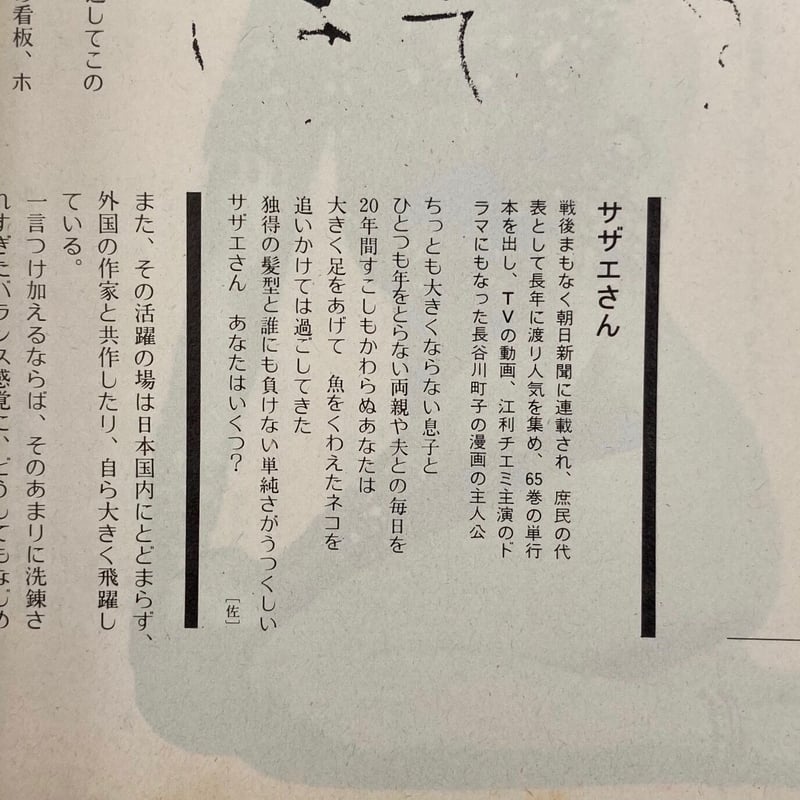 サザエさん
戦後まもなく朝日新聞に連載され、庶民の代
表として長年に渡り人気を集め、65巻の単行
本を出し、TVの動画、江利チエミ主演のド
ラマにもなった長谷川町子の漫画の主人公
ちっとも大きくならない息子と
ひとつも年をとらない両親や夫との毎日を
20年間すこしもかわらぬあなたは
大きく足をあげて　魚をくわえたネコを
追いかけては過ごしてきた
独得の髪型と誰にも負けない単純さがうつくしい
サザエさん　あなたはいくつ？
［佐］
してこの
看板、ホ
また、その活躍の場は日本国内にとどまらず、
外国の作家と共作したり、自ら大きく飛躍し
ている。
一言つけ加えるならば、そのあまりに洗錬さ
れすぎたバランス感覚に、どうしてもなじめ